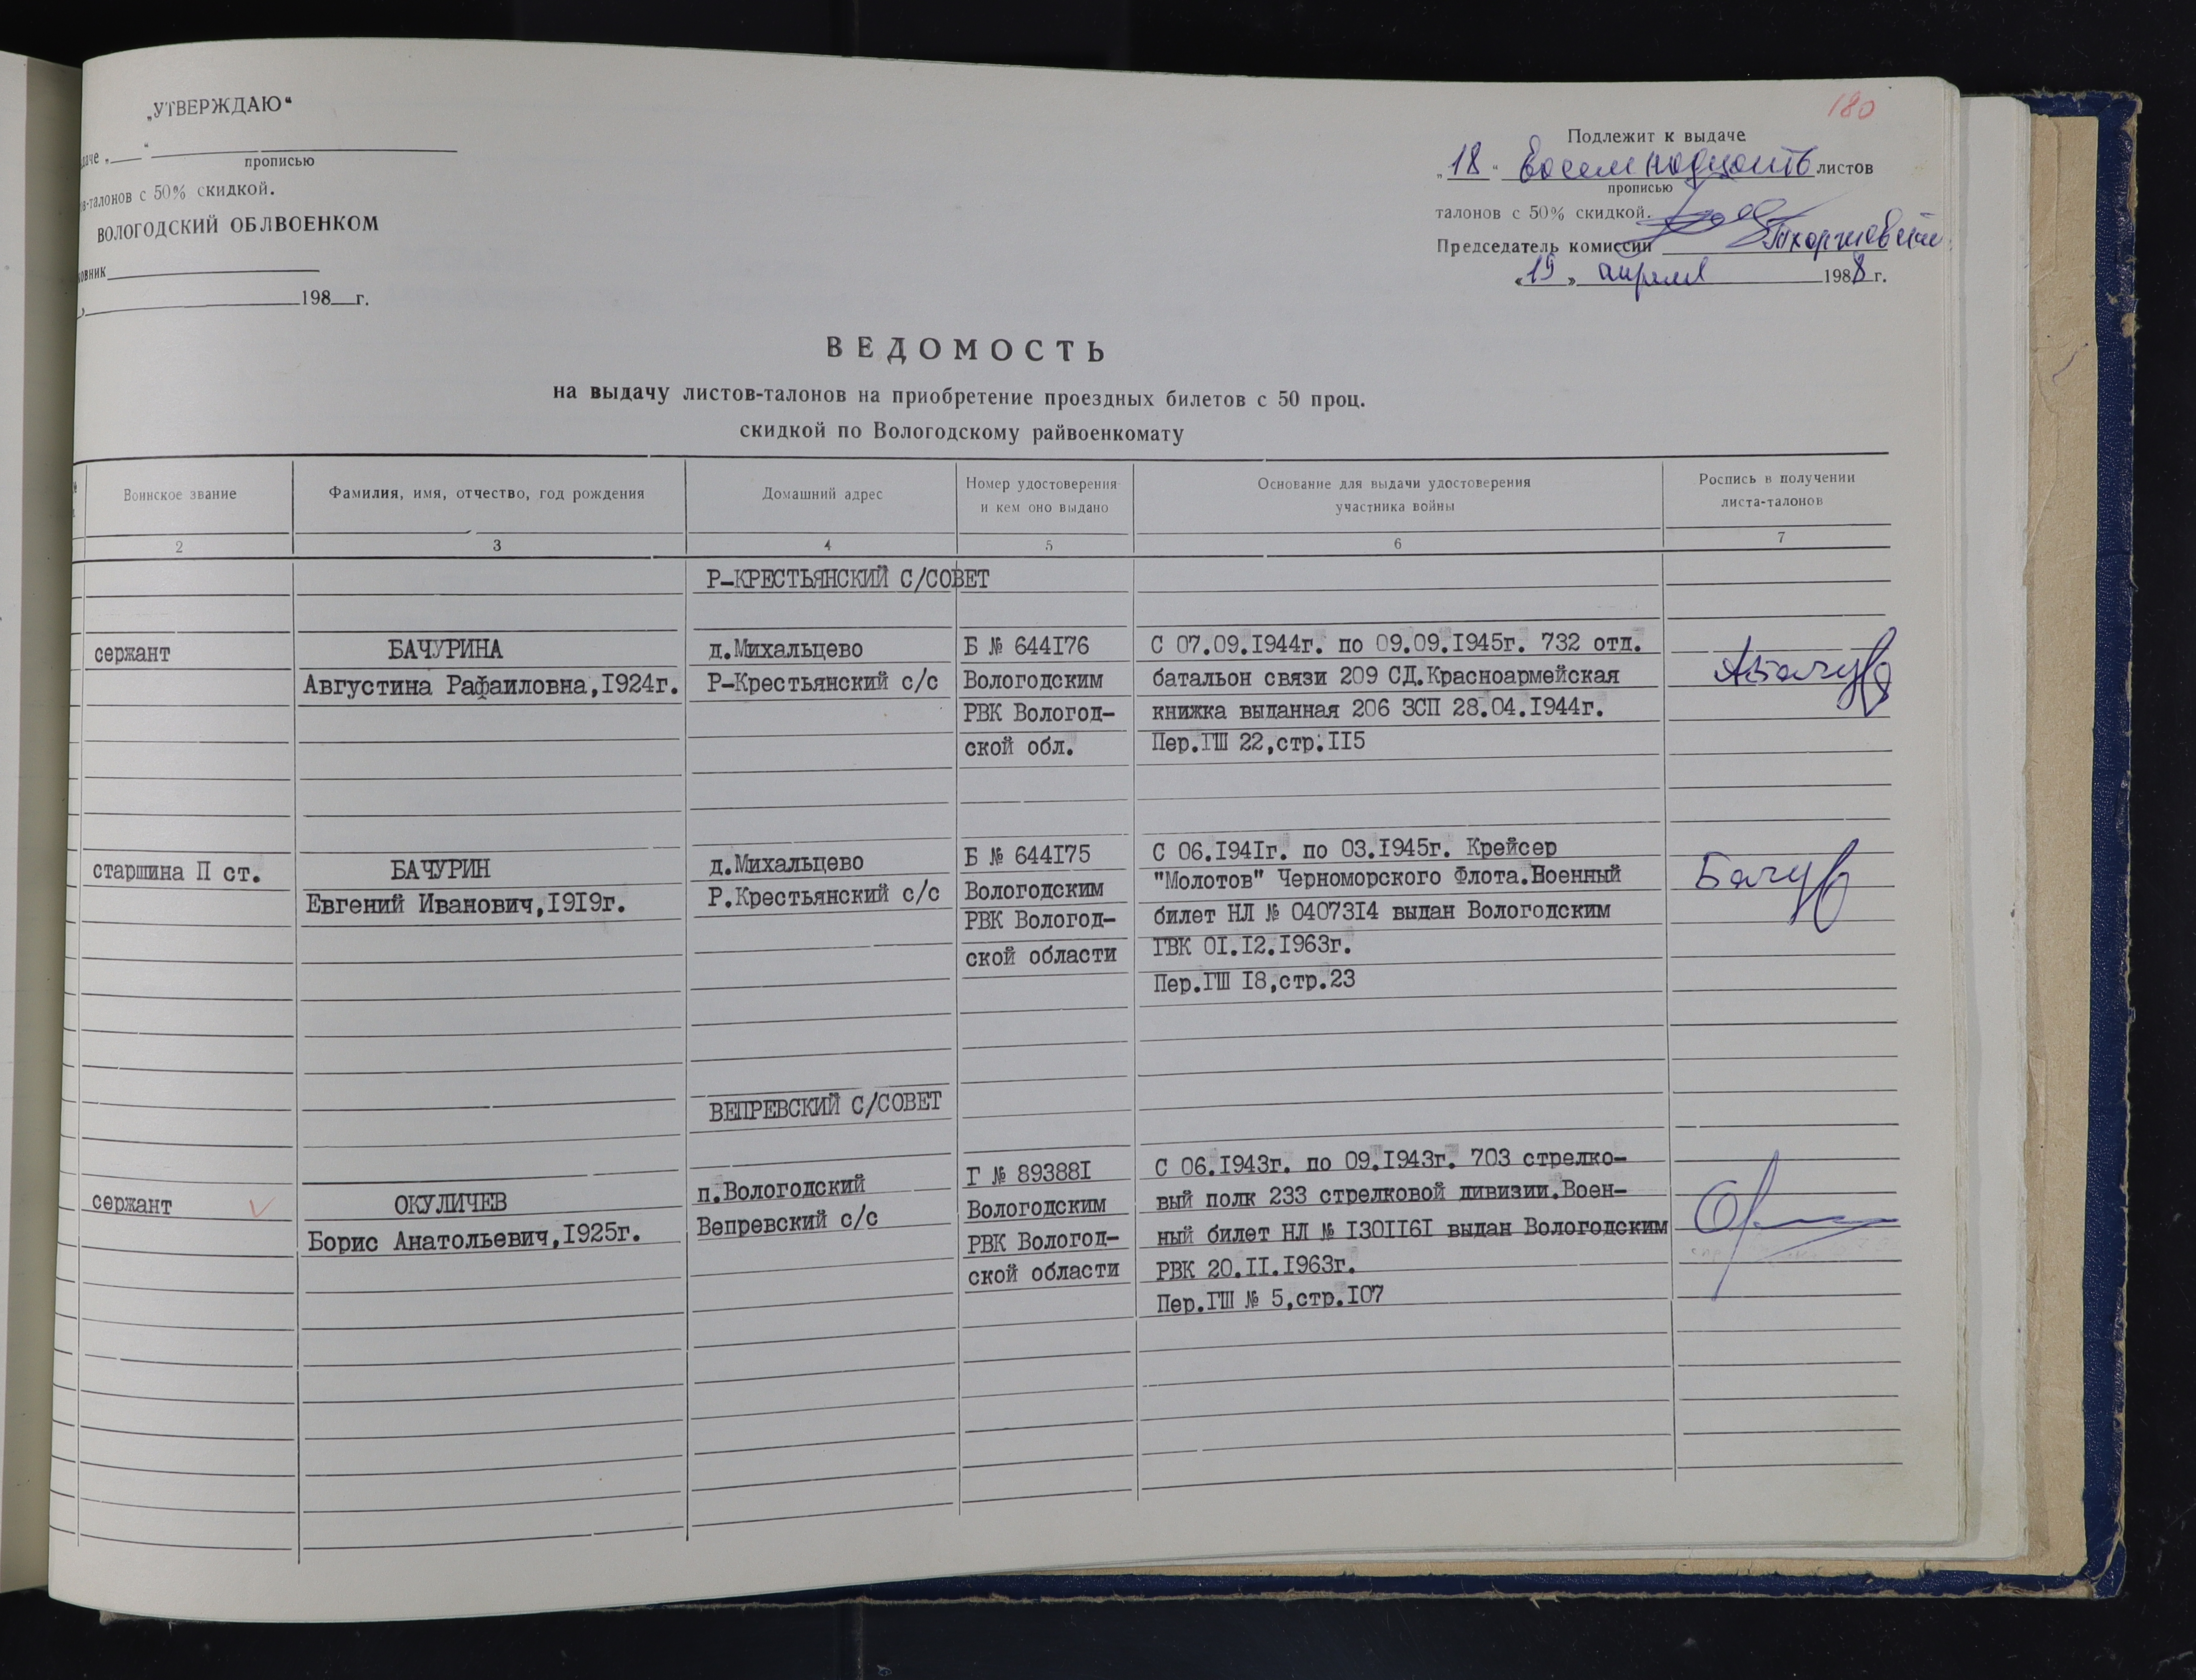 180
„УТВЕРЖДАЮ“
даче „ “
прописью
в-талонов с 50% скидкой.
ВОЛОГОДСКИЙ ОБЛВОЕНКОМ
овник
198 г.
Подлежит к выдаче
„18“ Восемнадцать листов
прописью
талонов с 50% скидкой.
Председатель комиссии
„19„ апреля 1988 г.
ВЕДОМОСТЬ
на выдачу листов-талонов на приобретение проездных билетов с 50 проц.
скидкой по Вологодскому райвоенкомату
Воинское звание
Фамилия, имя, отчество, год рождения
Домашний адрес
Номер удостоверения
и кем оно выдано
Основание для выдачи удостоверения
участника войны
Роспись в получении
листа-талонов
2 3 4 5 6 7
Р-КРЕСТЬЯНСКИЙ С/СОВЕТ
сержант
БАЧУРИНА
Августина Рафаиловна,I924г.
д.Михальцево
Р-Крестьянский с/с
Б № 644I76
Вологодским
РВК Вологод-
ской обл.
С 07.09.I944г. по 09.09.I945г. 732 отд.
батальон связи 209 СД.Красноармейская
книжка выданная 206 ЗСП 28.04.I944г.
Пер.ГШ 22,стр.II5
АБачур
старшина П ст.
БАЧУРИН
Евгений Иванович,I9I9г.
д.Михальцево
Р.Крестьянский с/с
Б № 644I75
Вологодским
РВК Вологод-
ской области
С 06.I94Iг. по 03.I945г. Крейсер
"Молотов" Черноморского Флота.Военный
билет НЛ № 04073I4 выдан Вологодским
ГВК 0I.I2.I963г.
Пер.ГШ I8,стр.23
Бачур
ВЕПРЕВСКИЙ С/СОВЕТ
сержант
ОКУЛИЧЕВ
Борис Анатольевич,I925г.
п.Вологодский
Вепревский с/с
Г № 89388I
Вологодским
РВК Вологод-
ской области
С 06.I943г. по 09.I943г. 703 стрелко-
вый полк 233 стрелковой дивизии.Воен-
ный билет НЛ № I30II6I выдан Вологодским
РВК 20.II.I963г.
Пер.ГШ № 5,стр.I07